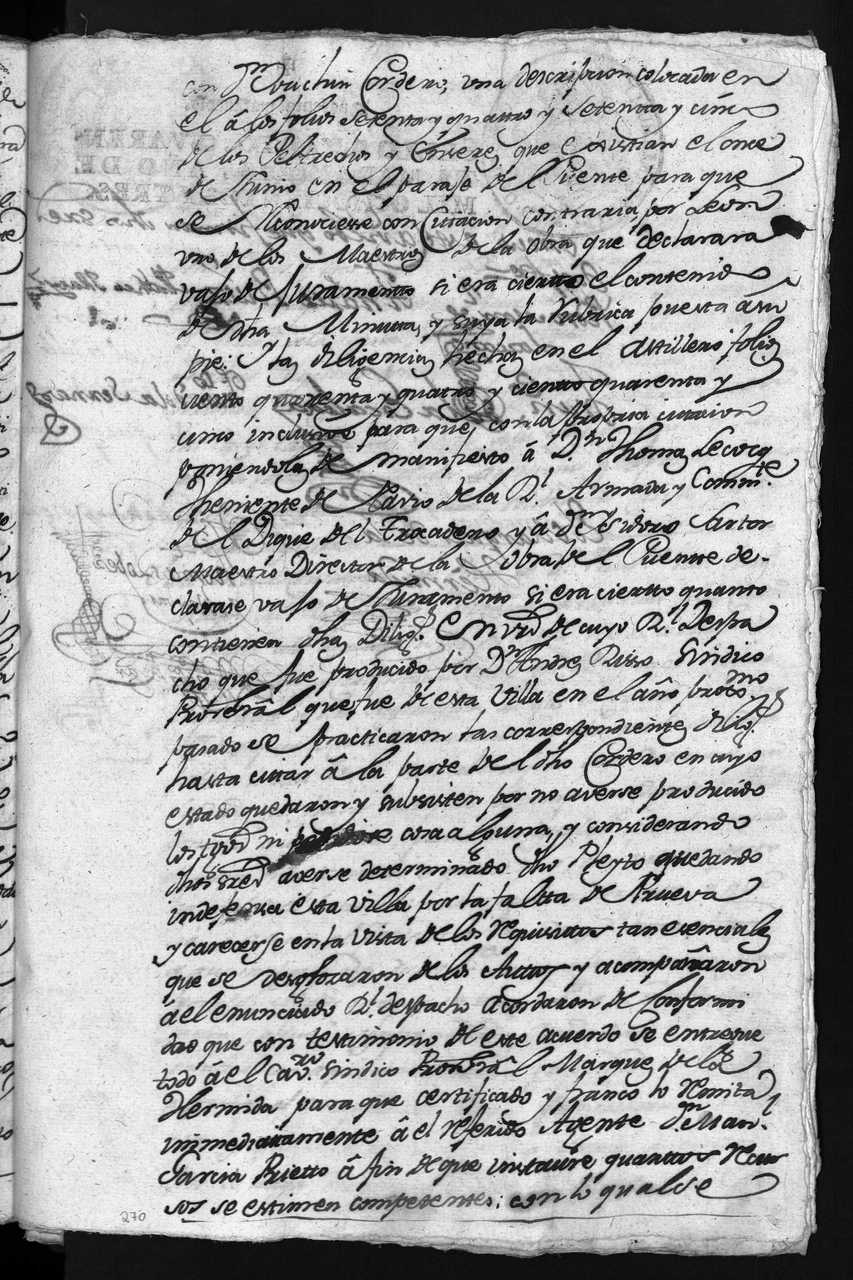 con Dn. Joachin Cordero, una descripcion colocada en
el â los folios setenta y quattro y Setentta y cinco
de los Peltrechos y Enseres que existian el onze
de Junio en el paraje del Puente para que
se Reconociesse con Citacion contraria por Leon
uno de los Maestros de la obra que declarara
vajo de juramento si era ciertto el contenido
de dha Minuta, y suya la rubrica puesta â su
pie; Y las diligencias hechas en el Astillero folios
ciento quarenta y quatro, y ciento quarenta y
cinco inclusive para que con la propria citacion
poniendolas de manifiesto â Dn. Thomas Lecocq
Theniente de Navio de la Rl. Armada y Commte.
del Dique del Trocadero y â Dn. Isidoro Sartor
Maestro Director de la Obra del Puente de-
clarase vajo de Juramento si era ciertto quanto
contienen dhas Diligs. En vrd. de cuyo Rl. Despa
cho que fue producido por Dn. Andres Risso Sindico
Procurâl que fue de esta Villa en el año proximo
pasado se practicaron las correspondientes dilixs.
hasta citar â la parte del dho Cordero en cuyo
estado quedaron y subsisten por no averse producido
los ni cosa alguna, y considerando
dhos Sres. averse determinado dho Pleyto quedando
indefensa esta villa por la faltta de Prueva
y carecerse en la vista de los Requisittos tan esenciales
que se desglozaron de los Auttos y acompañaron
â el enunciado Rl. despacho acordaron de Conformi
dad que con testimonio de este acuerdo se entregue
todo â el Cavro. Sindico Procurâl Marques de la
Hermida para que certificado y franco lo Remita
immediattamente â el referido Agente Dn. Man.
Garcia Prietto â fin de que instaure quanttos Recur
sos se estimen competentes; con lo qual se
270